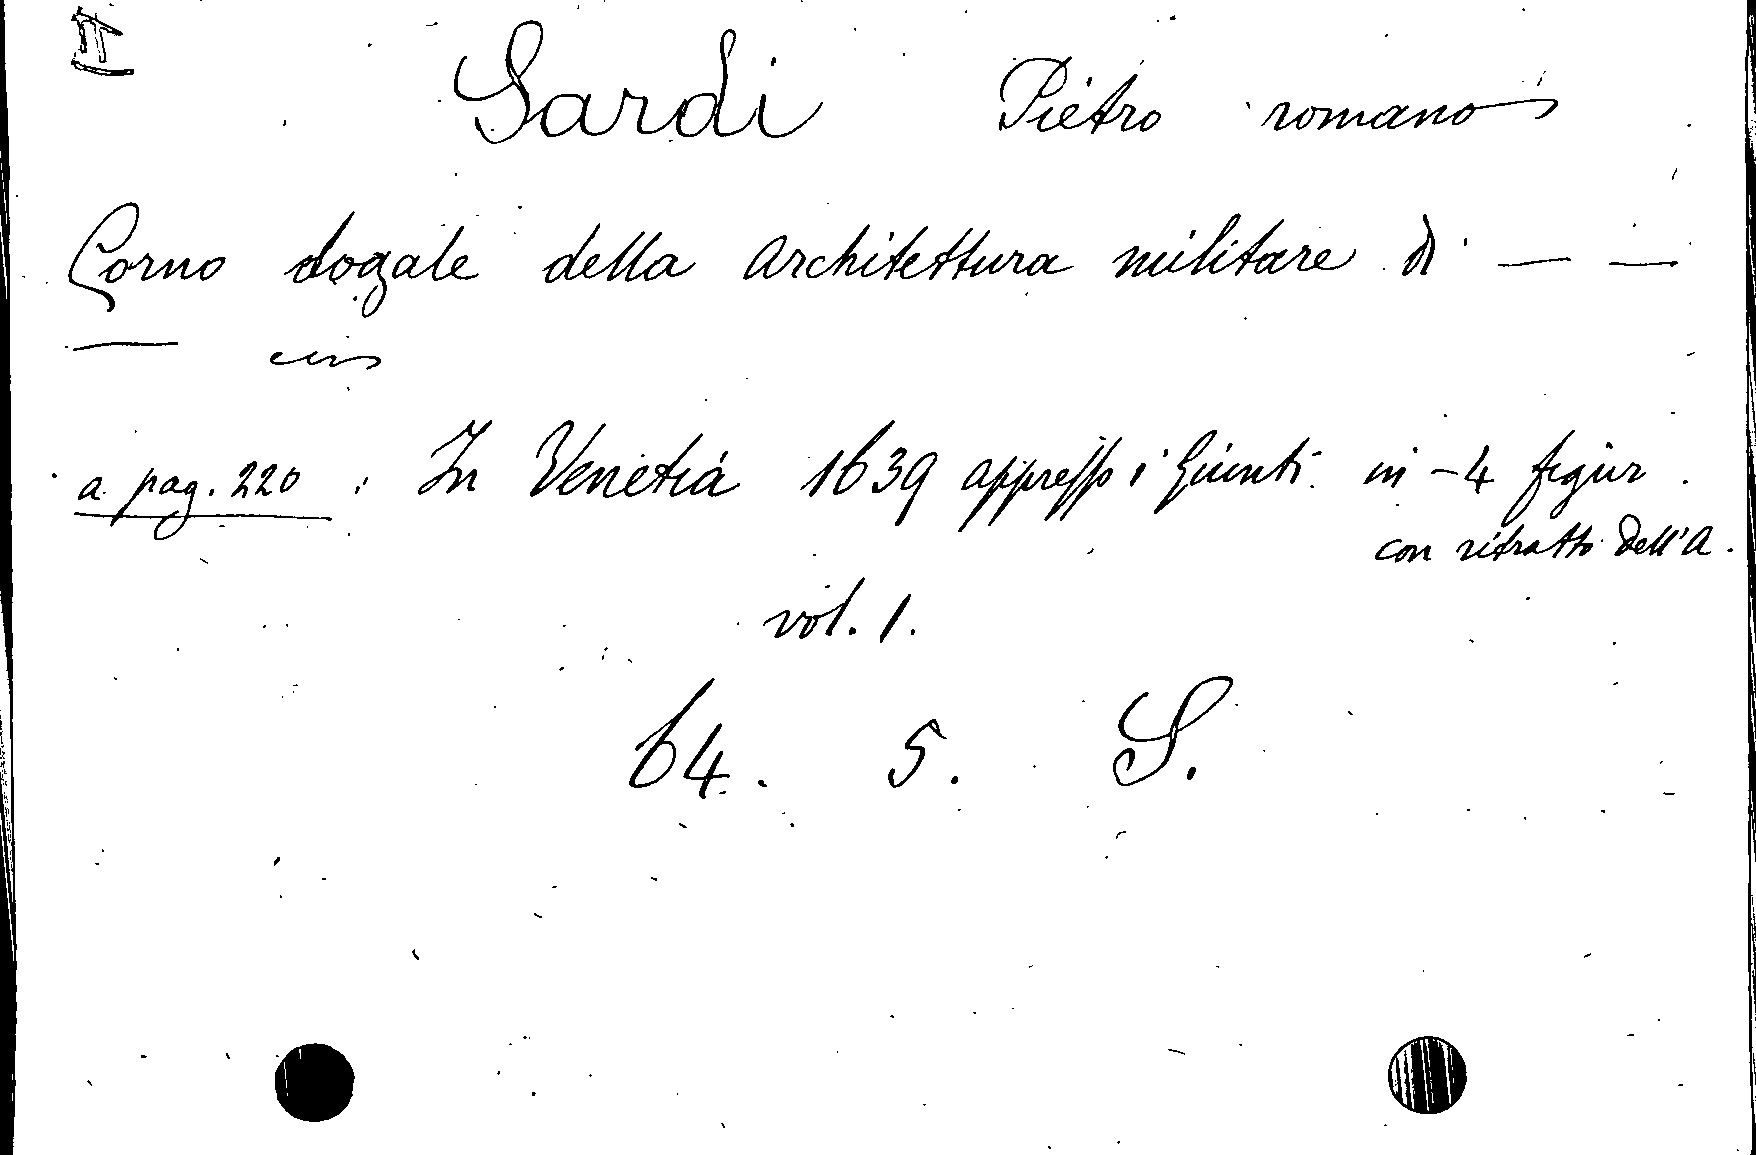 II
Sardi Pietro romano
Corno dogale della Architettura militare di — —
—
a pag. 220 : In Venetia 1639 appresso i Giunti in-4 figur.
con ritratto dell'A.
vol. 1.
64. 5. S.